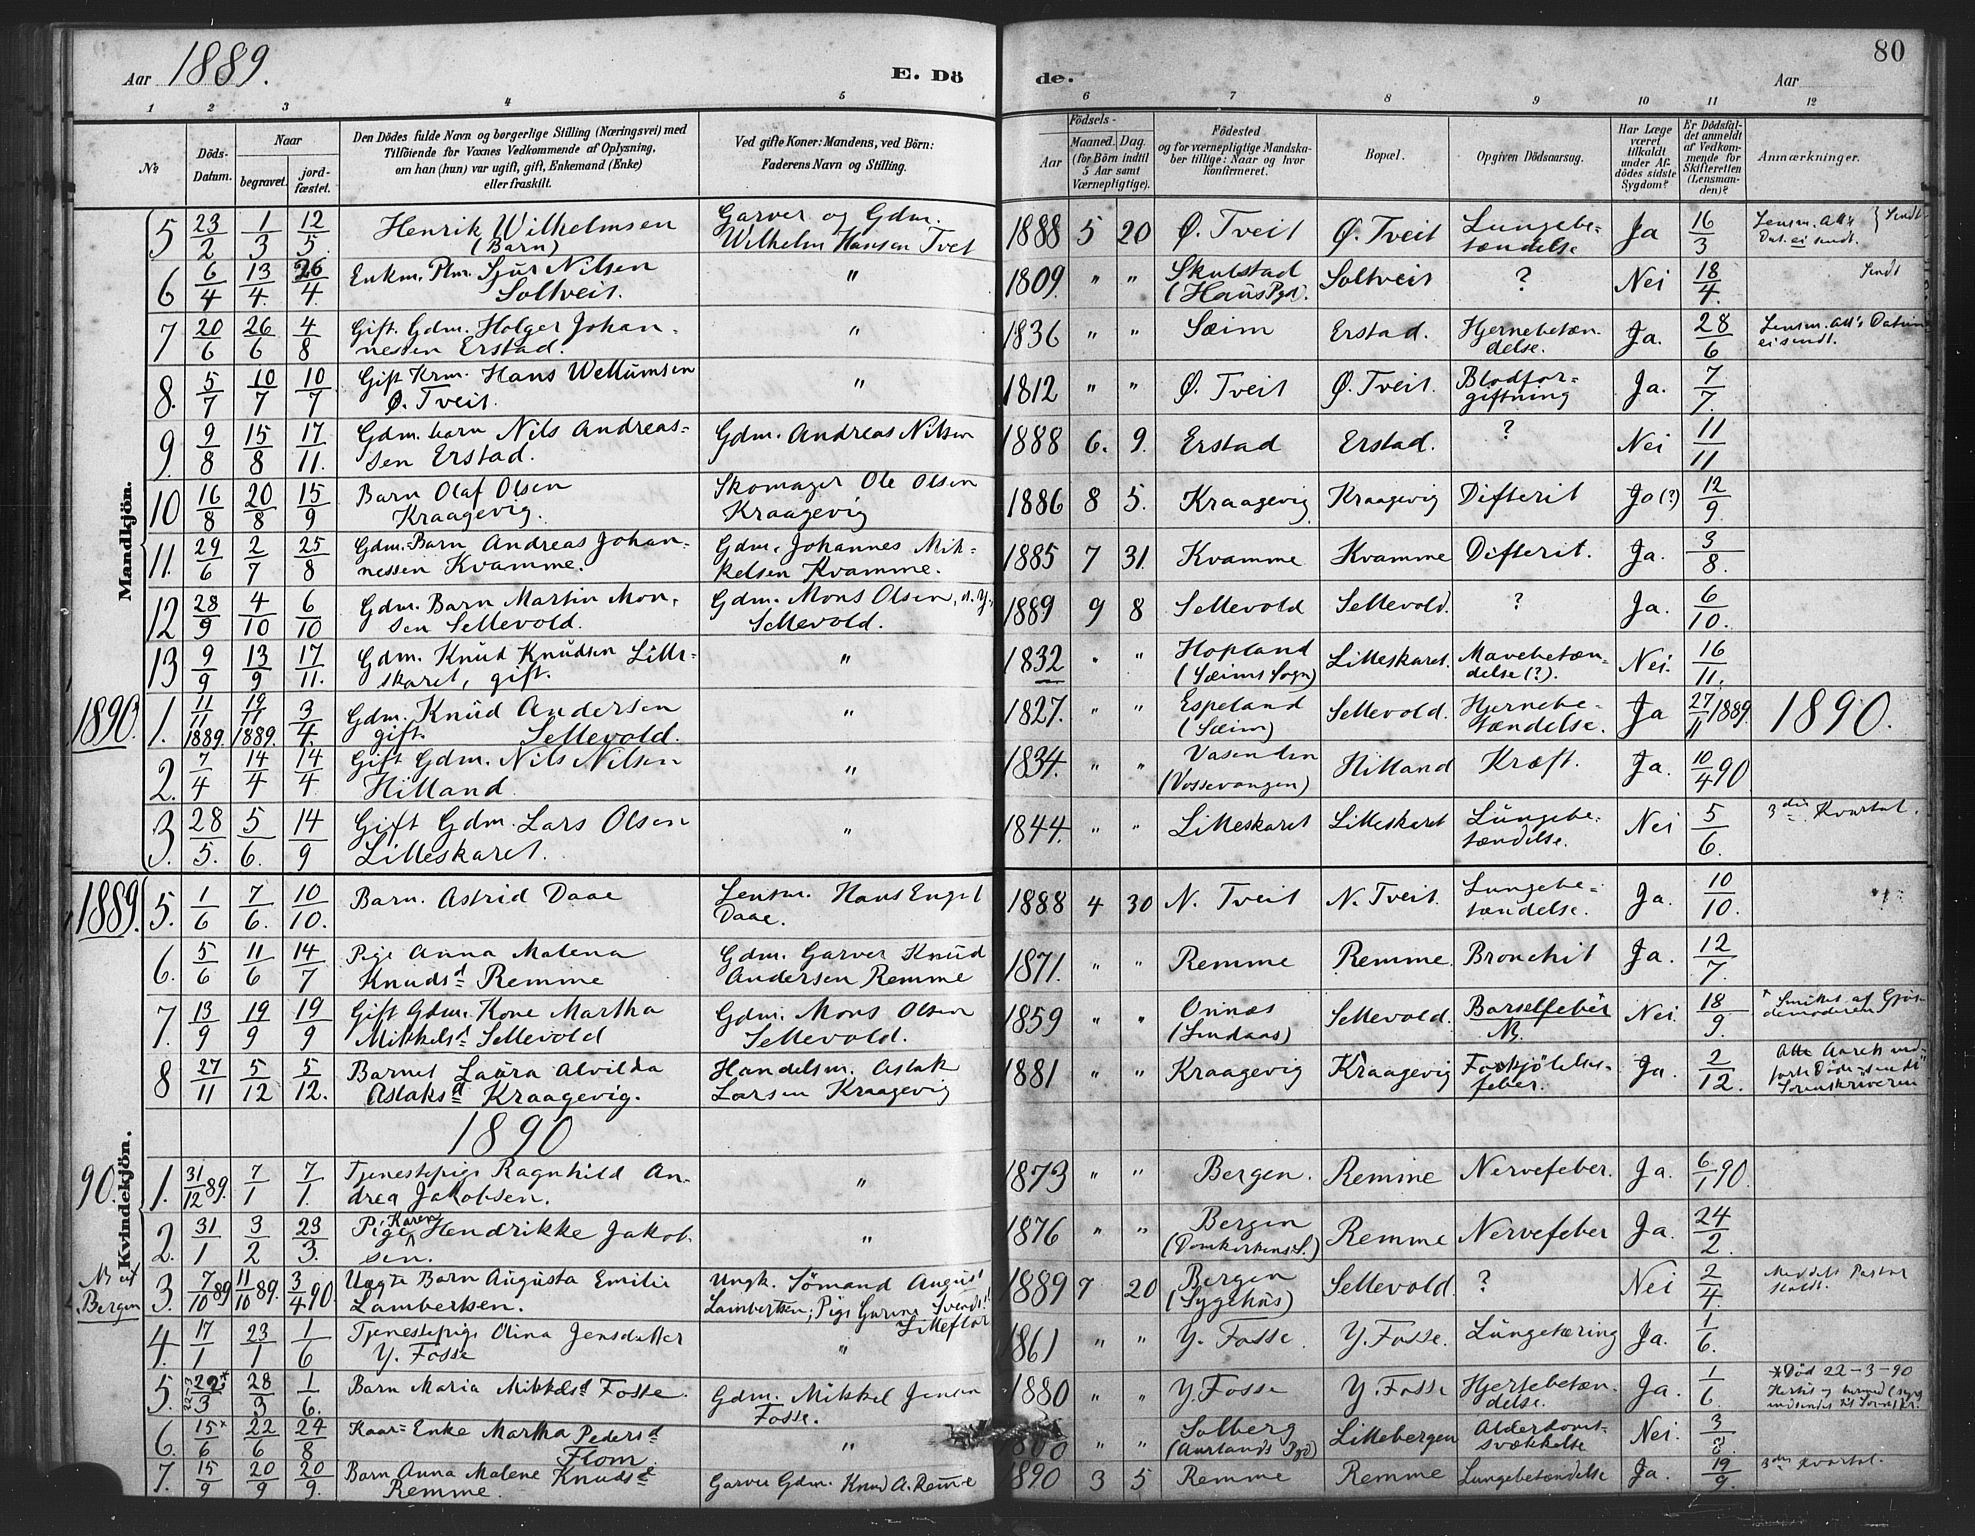 Aar 1889. E. Dö de. Aar 80
1 2 3 4 5 6 7 8 9 10 11 12
No
Döds-Datum.
Naar
begravet.
jord-fæstet.
Den Dödes fulde Navn og borgerlige Stilling (Næringsvei) med
Tilföiende for Voxnes Vedkommende af Oplysning,
om han (hun) var ugift, gift, Enkemand (Enke)
eller fraskilt.
Ved gifte Koner: Mandens, ved Börn:
Faderens Navn og Stilling.
Födsels-
Aar
Maaned. Dag.
(for Börn indtil
5 Aar samt
Værnepligtige).
Födested
og for værnepligtige Mandska-
ber tillige: Naar og hvor
konfirmeret.
Bopæl.
Opgiven Dödsaarsag.
Har Læge
været
tilkaldt
under Af-
dödes sidste
Sygdom?
Er Dödsfal-
det anmeldt
af Vedkom-
mende for
Skifteretten
(Lensman-
den)?
Anmærkninger.
Mandkjön.
5 23/2 1/3 12/5. Henrik Wilhelmsen Garver og Gdm. 1888 5 20 Ø. Tveit Ø. Tveit Lungebe- Ja 16/3 Lensm. Att's } Sendt
(Barn) Wilhelm Hansen Tvet tændelse Dat. ei sendt.
6 6/4 13/4. 26/4. Enkm. Plm. Sjur Nilsen " 1809. " " Skulstad Soltveit ? Nei 18/4. Sendt
Soltveit. (Haus Pgd.)
7 20/6 26/6 4/8 Gift Gdm. Holger Johan- " 1836 " " Sæim Erstad. Hjernebetæn- Ja. 28/6 Lensm. Att's Datum
nessen Erstad. delse. ei sendt.
8. 5/7 10/7 10/7 Gift Krm. Hans Wellumsen " 1812 " " Ø. Tveit Ø. Tveit. Blodfor- Ja. 7/7.
Ø. Tveit. giftning
9. 9/8 15/8 17/11. Gdm. barn Nils Andreas- Gdm. Andreas Nilsen 1888 6. 9. Erstad Erstad. ? Nei 11/11
sen Erstad.
10 16/8 20/8 15/9 Barn Olaf Olsen Skomager Ole Olsen 1886 8 5. Kraagevig Kraagevig Difterit Jo (?) 12/9.
Kraagevig. Kraagevig
11. 29/6 2/7 25/8 Gdm.-Barn Andreas Johan- Gdm. Johannes Mik- 1885 7 31. Kvamme Kvamme Difterit. Ja. 3/8.
nessen Kvamme. kelsen Kvamme.
12 28/9 4/10 6/10 Gdm. Barn Martin Mon- Gdm. Mons Olsen, d. y. 1889 9 8 Sellevold Sellevold. ? Ja. 6/10.
sen Sellevold. Sellevold.
13 9/9 13/9 17/11. Gdm. Knud Knudsen Lille- " 1832 " " Hopland Lilleskaret. Mavebetæn- Nei. 16/11.
skaret, gift. (Sæims Sogn) delse (?).
1890. 1. 11/11 1889. 19/11 1889. 3/4. Gdm. Knud Andersen " 1827. " " Espeland Sellevold. Hjernebe- Ja 27/11 1889. 1890.
gift. Sellevold. (Sæim) tændelse.
2. 7/4 14/4 14/4. Gift Gdm. Nils Nilsen " 1834. " " Vasenden Hilland Kræft. Ja. 10/4 90
Hilland. (Vossevangen)
3. 28/5. 5/6. 14/9 Gift Gdm. Lars Olsen " 1844. " " Lilleskaret Lilleskaret Lungebe- Nei 5/6. 3die Kvartal.
Lilleskaret. tændelse.
Kvindekjön.
1889. 5. 1/6 7/6. 10/10. Barn. Astrid Daae Lensm. Hans Engel 1888 4 30 N. Tveit N. Tveit. Lungebe- Ja. 10/10.
Daae. tændelse.
6. 5/6 11/6 14/7 Pige Anna Malena Gdm. Garver Knud 1871. " " Remme Remme. Bronchit Ja. 12/7.
Knudsd Remme Andersen Remme
7. 13/9 19/9 19/9 Gift Gdm. Kone Martha Gdm. Mons Olsen 1859 " " Onnæs Sellevold. Barselfeber Nei. 18/9. * Smittet af Gjor-
Mikkelsd Sellevold Sellevold. (Lindaas) demoderen
8 27/11 5/12 5/12. Barnet Laura Alvilda Handelsm. Aslak 1881 " " Kraagevig Kraagevig Forkjölelses- Ja. 2/12.
Aslaksd Kraagevig. Larsen Kraagevig feber. Sorenskriveren
1890
90. 1. 31/12 89. 7/1 7/1. Tjenestepige Ragnhild An- " 1873 " " Bergen. Remme Nervefeber. Ja. 6/1 90.
drea Jakobsen.
2. 31/1 3/2 23/3. Pige Karen Hendrikke Jakob- " 1876 " " Bergen Remme Nervefeber Ja. 24/2.
sen. (Domkirkens S.)
Bergen 3. 7/10 89 11/10 89. 3/4 90 Uægte Barn Augusta Emilie Ungk. Sömand August 1889 7 20 Bergen Sellevold. ? Nei 2/4. Meddelt Pastor
Lambertsen. Lambertsen; Pige Gurine Svendsd (Sygehus)
Lilleflor
4. 17/1 23/1 1/6 Tjenestepige Olina Jensdatter " 1861 " " Y. Fosse. Y. Fosse. Lungetæring Ja. 1/6.
Y. Fosse
5. 22*/3 28/3 1/6. Barn Maria Mikkelsd Fosse. Gdm. Mikkel Jensen 1880 " " Y. Fosse Y. Fosse Hjertebetæn- Ja. 1/6. *Död 22-3-90
Fosse. delse.
6. 15*/6 22/6 24/8 Kaar-Enke Martha Pedersd " " " Solberg Lillebergen Alderdoms- Nei. 3/8.
Flom. (Aurlands Pgd) svækkelse
7. 15/9 20/9 20/9. Barn Anna Malene Knudsd Garver Gdm. Knud A. Remme 1890 3 5 Remme Remme Lungebetændelse Ja. 19/9. 3die Kvartal.
Remme.